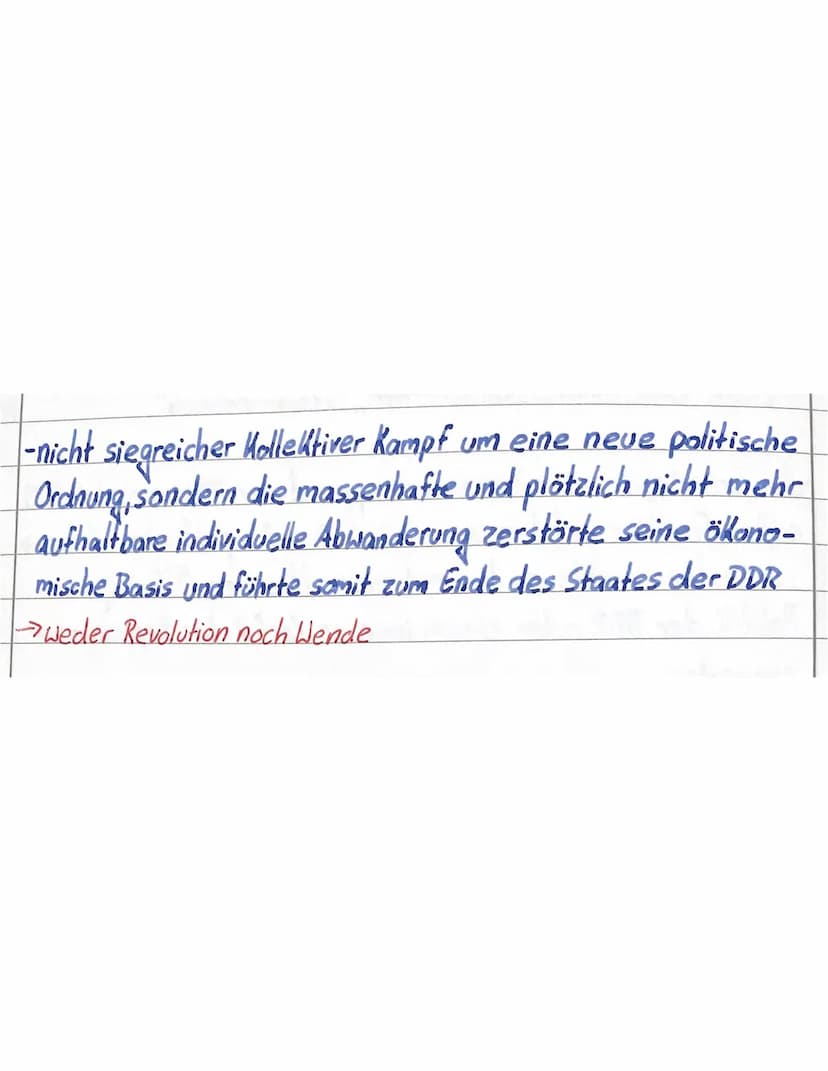 -nicht siegreicher Kollektiver Kampf um eine neue politische
Ordnung, sondern die massenhafte und plötzlich nicht mehr
aufhaltbare individuelle Abwanderung zerstörte seine ökono-
mische Basis und führte somit zum Ende des Staates der DDR
→weder Revolution noch Wende